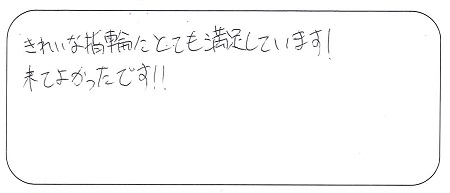 きれいな指輪にとても満足しています!
来てよかったです!!